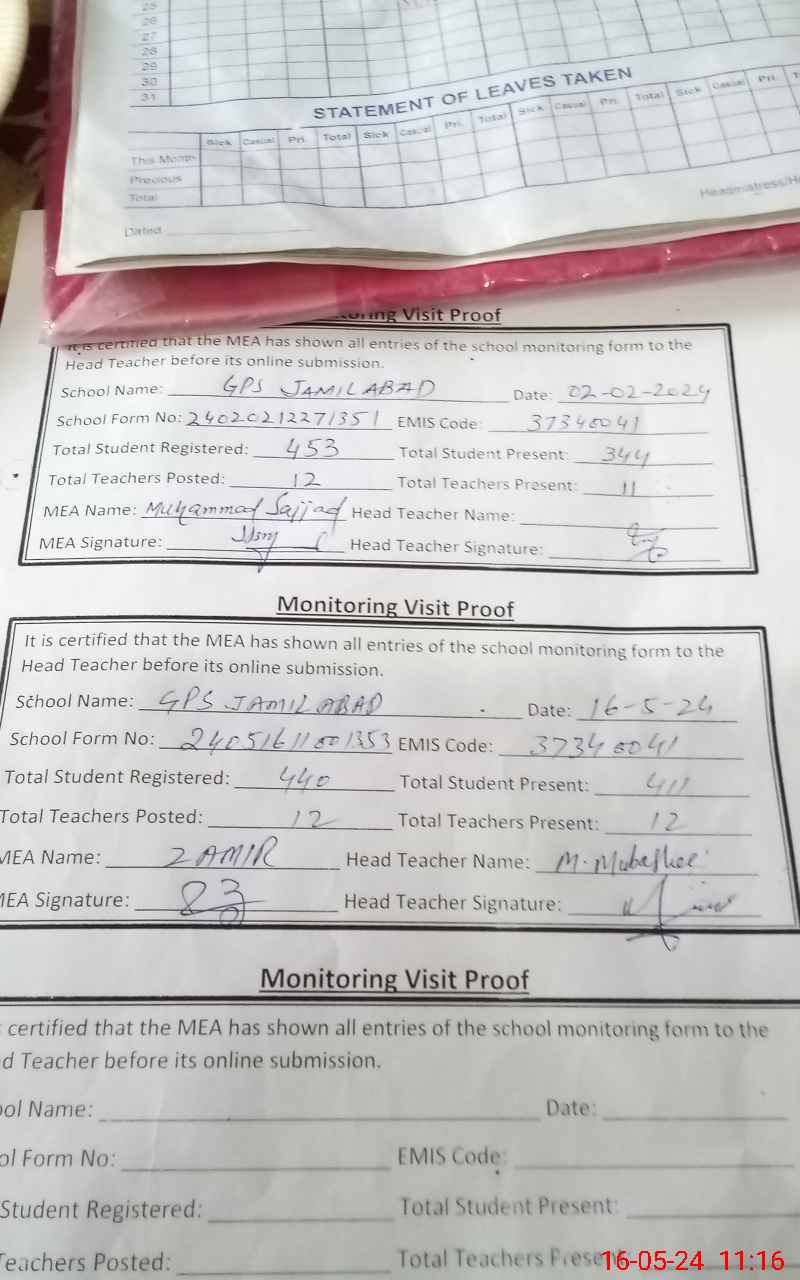 25
26
27
28
29
30
31
STATEMENT OF LEAVES TAKEN
Sick Casual Pri. Total Sick Casual Pri. Total Sick Casual Pri. Total Sick Casual Pri.
This Month
Precious
Total
Headmistress/H
Dated
oring Visit Proof
It is certified that the MEA has shown all entries of the school monitoring form to the
Head Teacher before its online submission.
School Name: GPS JAMILABAD Date: 02-02-2024
School Form No: 24020212271351 EMIS Code: 37340041
Total Student Registered: 453 Total Student Present: 344
Total Teachers Posted: 12 Total Teachers Present: 11
MEA Name: Muhammad Sajjad Head Teacher Name:
MEA Signature: Head Teacher Signature:
Monitoring Visit Proof
It is certified that the MEA has shown all entries of the school monitoring form to the
Head Teacher before its online submission.
School Name: GPS JAMILABAD Date: 16-5-24
School Form No: 24051611001353 EMIS Code: 37340041
Total Student Registered: 440 Total Student Present: 411
Total Teachers Posted: 12 Total Teachers Present: 12
MEA Name: ZAMIR Head Teacher Name: M. Mubasher
MEA Signature: Head Teacher Signature:
Monitoring Visit Proof
certified that the MEA has shown all entries of the school monitoring form to the
d Teacher before its online submission.
ool Name: Date:
ol Form No: EMIS Code:
Student Registered: Total Student Present:
Teachers Posted: Total Teachers Prese
16-05-24 11:16